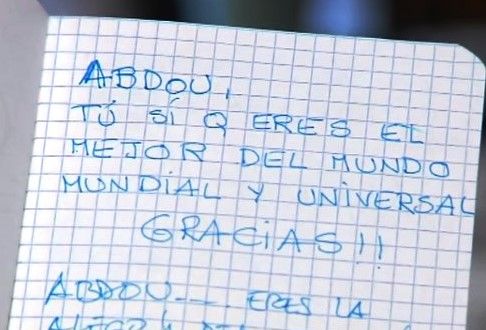 ABDOU,
TÚ SÍ Q ERES EL
MEJOR DEL MUNDO
MUNDIAL Y UNIVERSAL
GRACIAS!!
ABDOU.... ERES LA